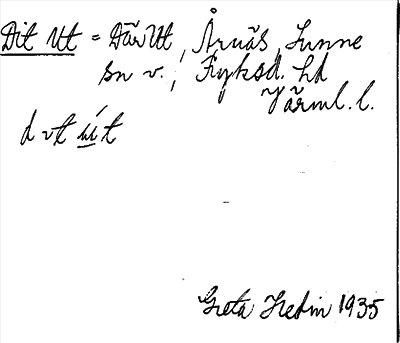 Dit Ut = Där Ut, Årnäs, Sunne
sn v., Fryksd. hd
Värml. l.
d vt út
Greta Hedin 1935